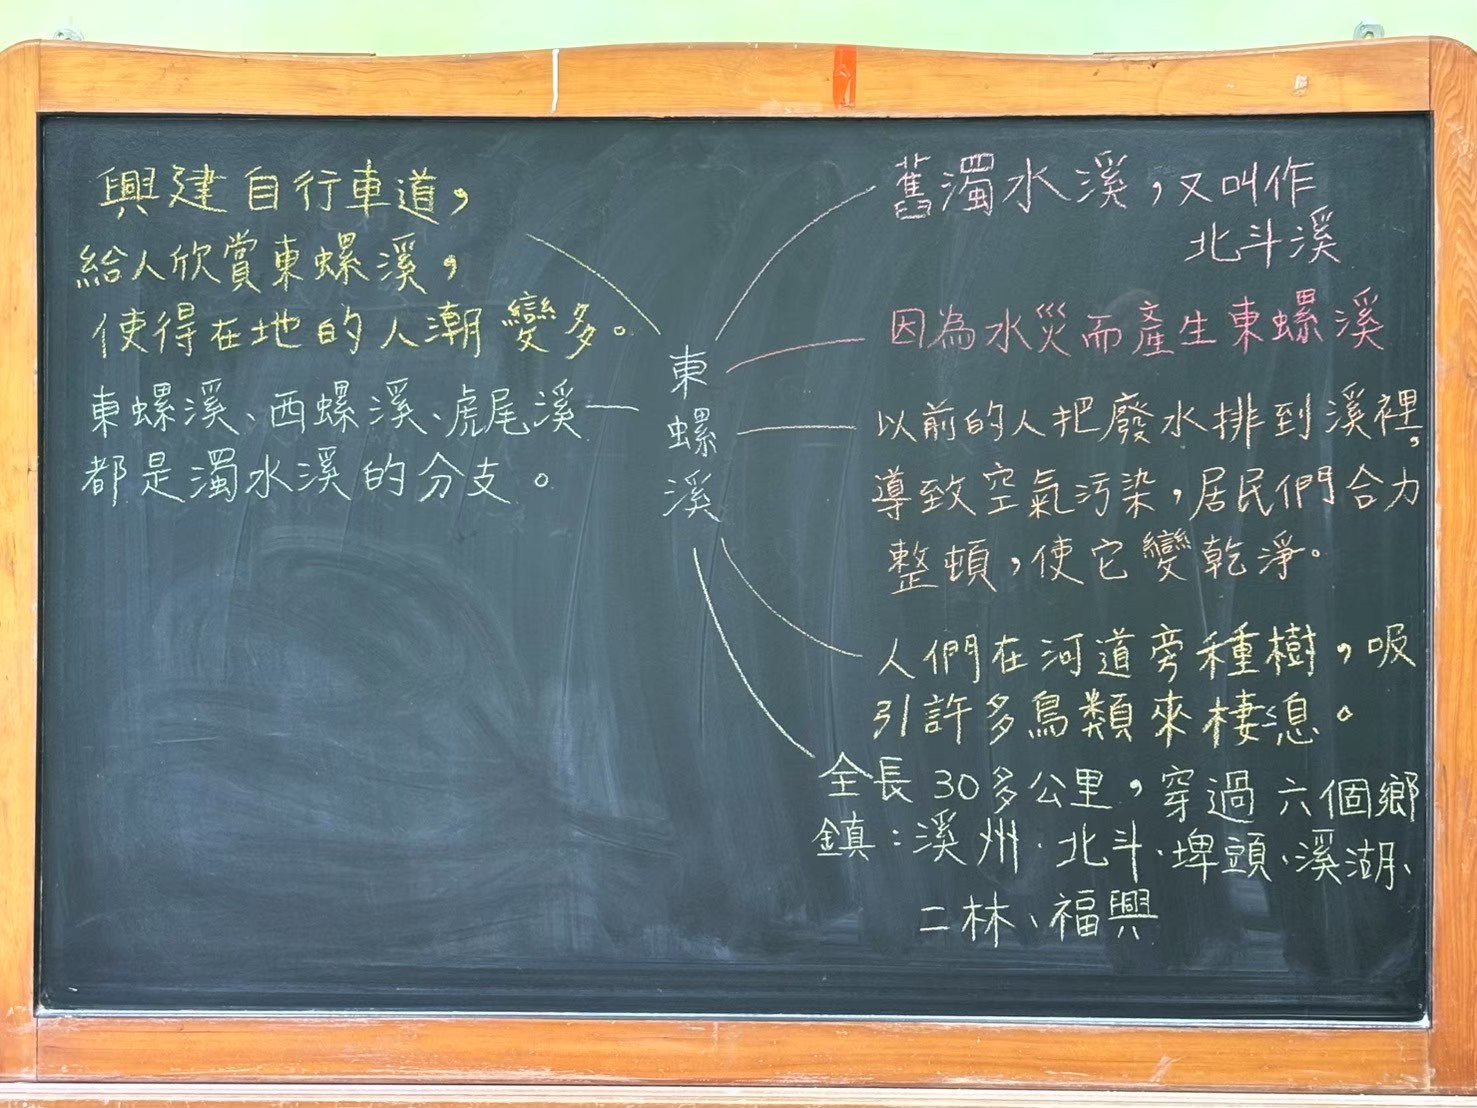 興建自行車道，
給人欣賞東螺溪，
使得在地的人潮變多。
東螺溪、西螺溪、虎尾溪
都是濁水溪的分支。
東螺溪
舊濁水溪，又叫作
北斗溪
因為水災而產生東螺溪
以前的人把廢水排到溪裡，
導致空氣污染，居民們合力
整頓，使它變乾淨。
人們在河道旁種樹，吸
引許多鳥類來棲息。
全長30多公里，穿過六個鄉
鎮：溪州、北斗、埤頭、溪湖、
二林、福興